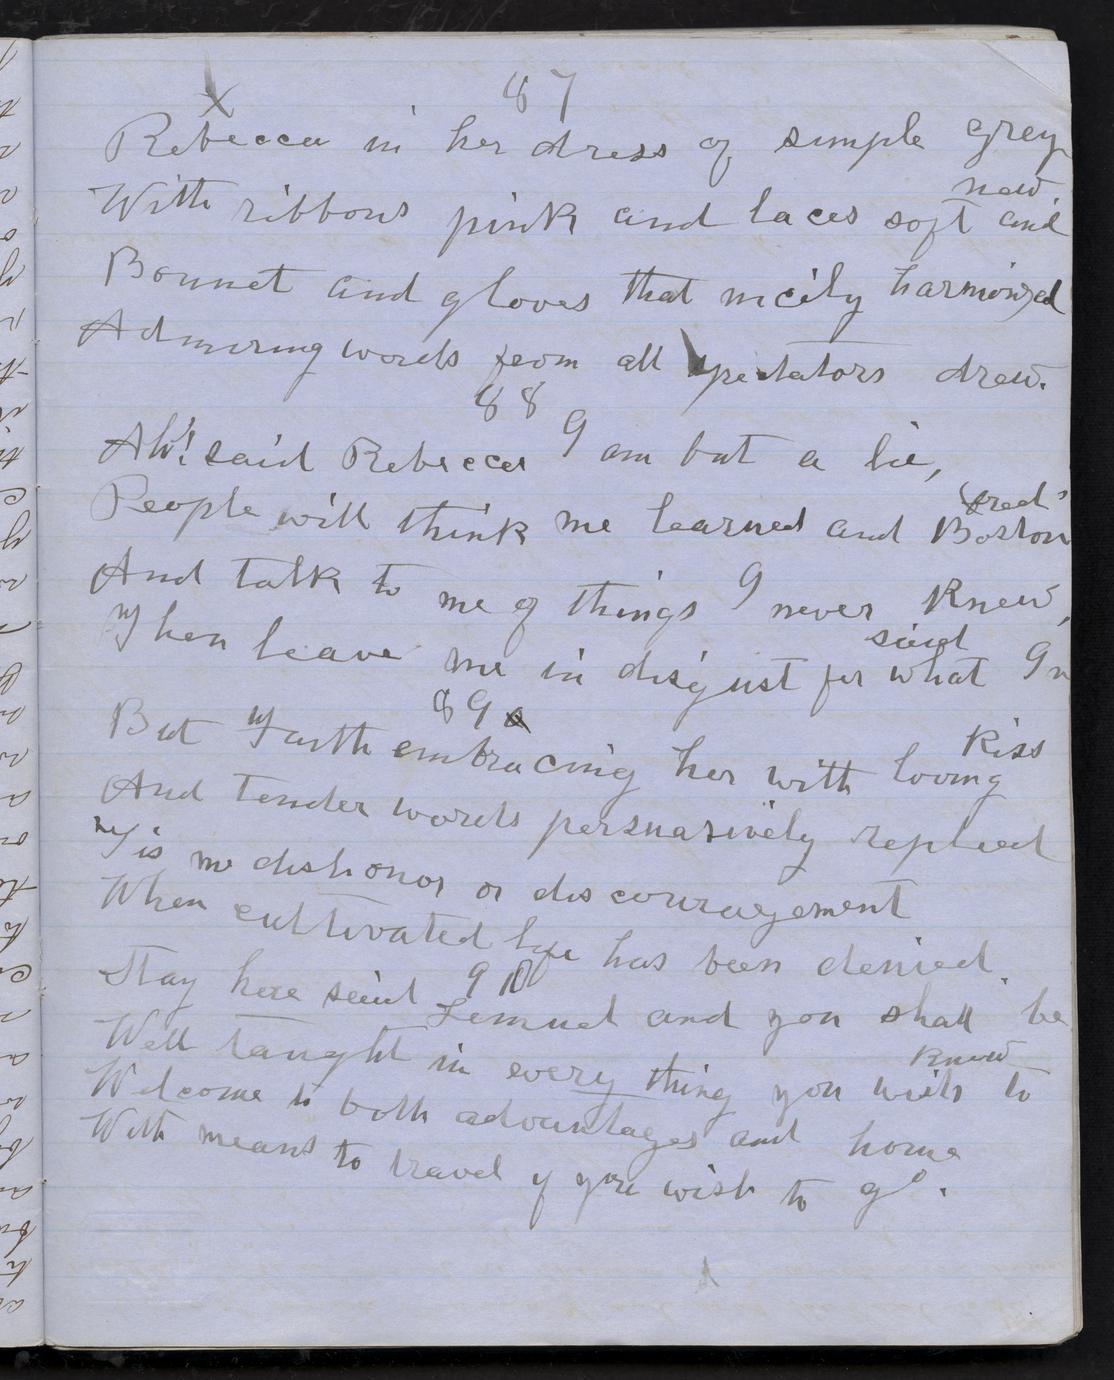 87
Rebecca in her dress of simple grey
With ribbons pink and laces soft and new
Bonnet and gloves that nicely harmonized
Admiring words from all spectators drew.
88
Ah! said Rebecca I am but a lie,
People will think me learned and Boston bred
And talk to me of things I never knew,
Then leave me in disgust for what I said
89
But Faith embracing her with loving kiss
And tender words persuasively replied
'Tis no dishonor or discouragement
When cultivated life has been denied.
90
Stay here said Lemuel and you shall be
Well taught in every thing you wish to know
Welcome to both advantages and home
With means to travel if you wish to go.